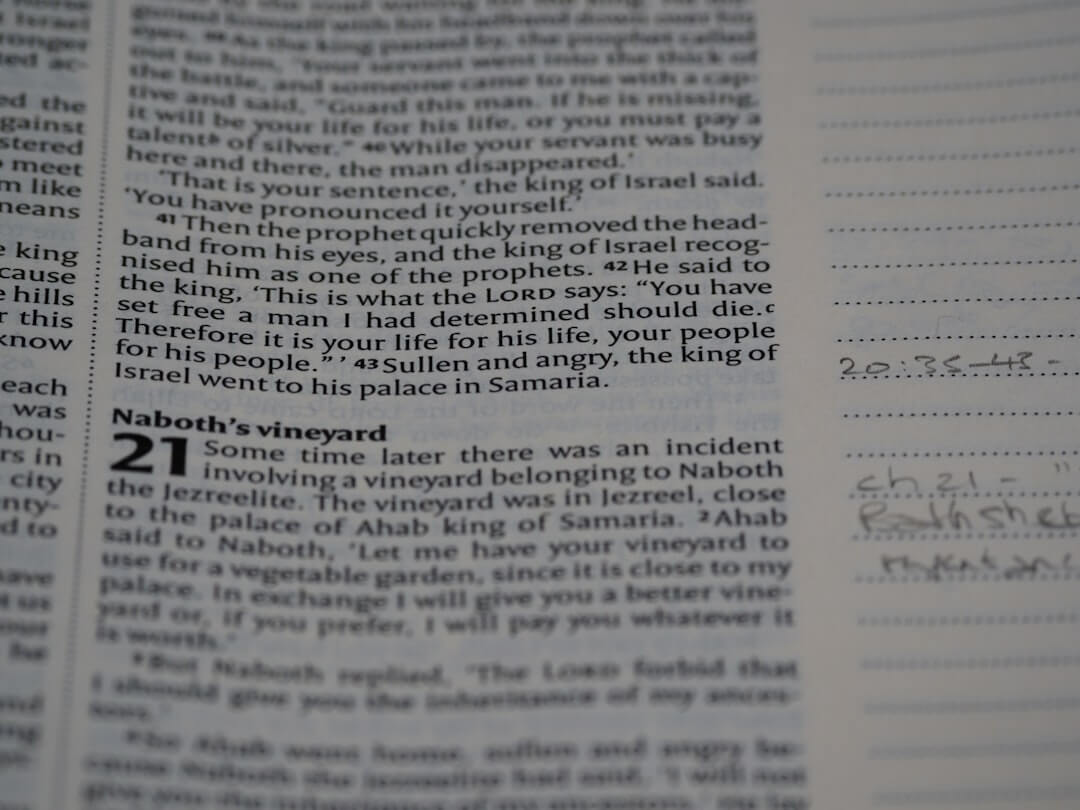 Israel
ronger
ted ac-
ed the
gainst
stered
meet
m like
means
e king
cause
e hills
r this
know
each
was
hou-
rs in
city
nty-
d to
have
t us
be
eyes. 39 As the king passed by, the prophet called
out to him, 'Your servant went into the thick of
the battle, and someone came to me with a cap-
tive and said, "Guard this man. If he is missing,
it will be your life for his life, or you must pay a
talentb of silver." 40 While your servant was busy
here and there, the man disappeared.'
'That is your sentence,' the king of Israel said.
'You have pronounced it yourself.'
41 Then the prophet quickly removed the head-
band from his eyes, and the king of Israel recog-
nised him as one of the prophets. 42 He said to
the king, 'This is what the LORD says: "You have
set free a man I had determined should die.c
Therefore it is your life for his life, your people
for his people." ' 43 Sullen and angry, the king of
Israel went to his palace in Samaria.
Naboth's vineyard
21 Some time later there was an incident
involving a vineyard belonging to Naboth
the Jezreelite. The vineyard was in Jezreel, close
to the palace of Ahab king of Samaria. 2 Ahab
said to Naboth, 'Let me have your vineyard to
use for a vegetable garden, since it is close to my
palace. In exchange I will give you a better vine-
yard or, if you prefer, I will pay you whatever it
is worth.'
3 But Naboth replied, 'The LORD forbid that
I should give you the inheritance of my ances-
tors.'
4 So Ahab went home, sullen and angry be-
cause Naboth the Jezreelite had said, 'I will not
give you the inheritance of my ancestors.'
20:35-43 -
ch 21 - "